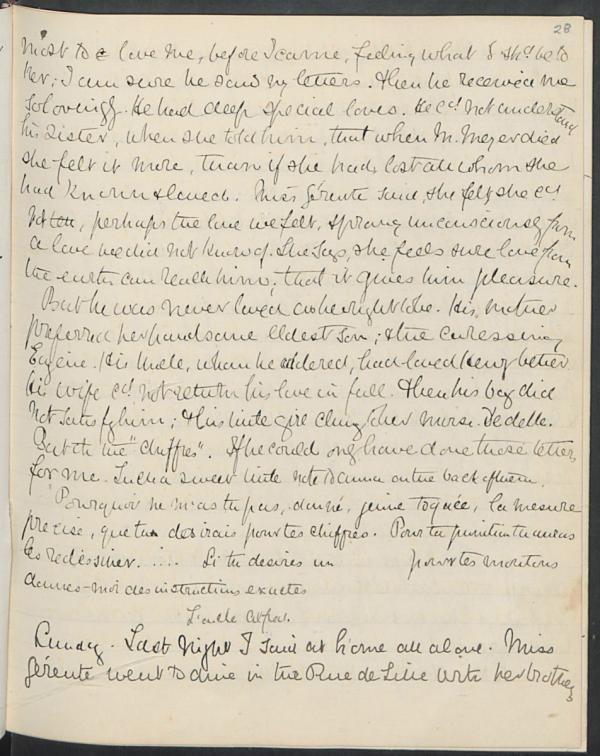 28
most to love me, before I came, feeling what I shd be to
her; I am sure he saw my letters. Then he received me
so lovingly. He had deep special loves. He cd not understand
his sister, when she told him, that when M. Meyer died
she felt it more, than if she had lost all whom she
had known & loved. Miss Gérente said, she felt she cd
not, perhaps the love we felt, sprang unconsciously from
a love we did not know of. She says, she feels sure love from
the earth can reach him; that it gives him pleasure.
But he was never loved as he might be. His mother
preferred her handsome eldest son; & the caressing
Eugène. His Uncle, whom he adored, had loved Henry better
his wife cd not return his love in full. Then his boy did
not satisfy him; & his little girl clung to her nurse.
But the "chiffres". If he could only have done those letters
for me. Such a sweet little note to Emma on the back of them.
"Pourquoi ne m'as tu pas, donné, jeune toquée, la mesure
précise, que tu désirais pour tes chiffres. Pour ta punition tu auras
les redessiner. .... Si tu desires un pour tes moutons
donnes-moi des instructions exactes
Lundy. Last Night I said at home all alone. Miss
Gérente went to dine in the Rue de Lille with her brother